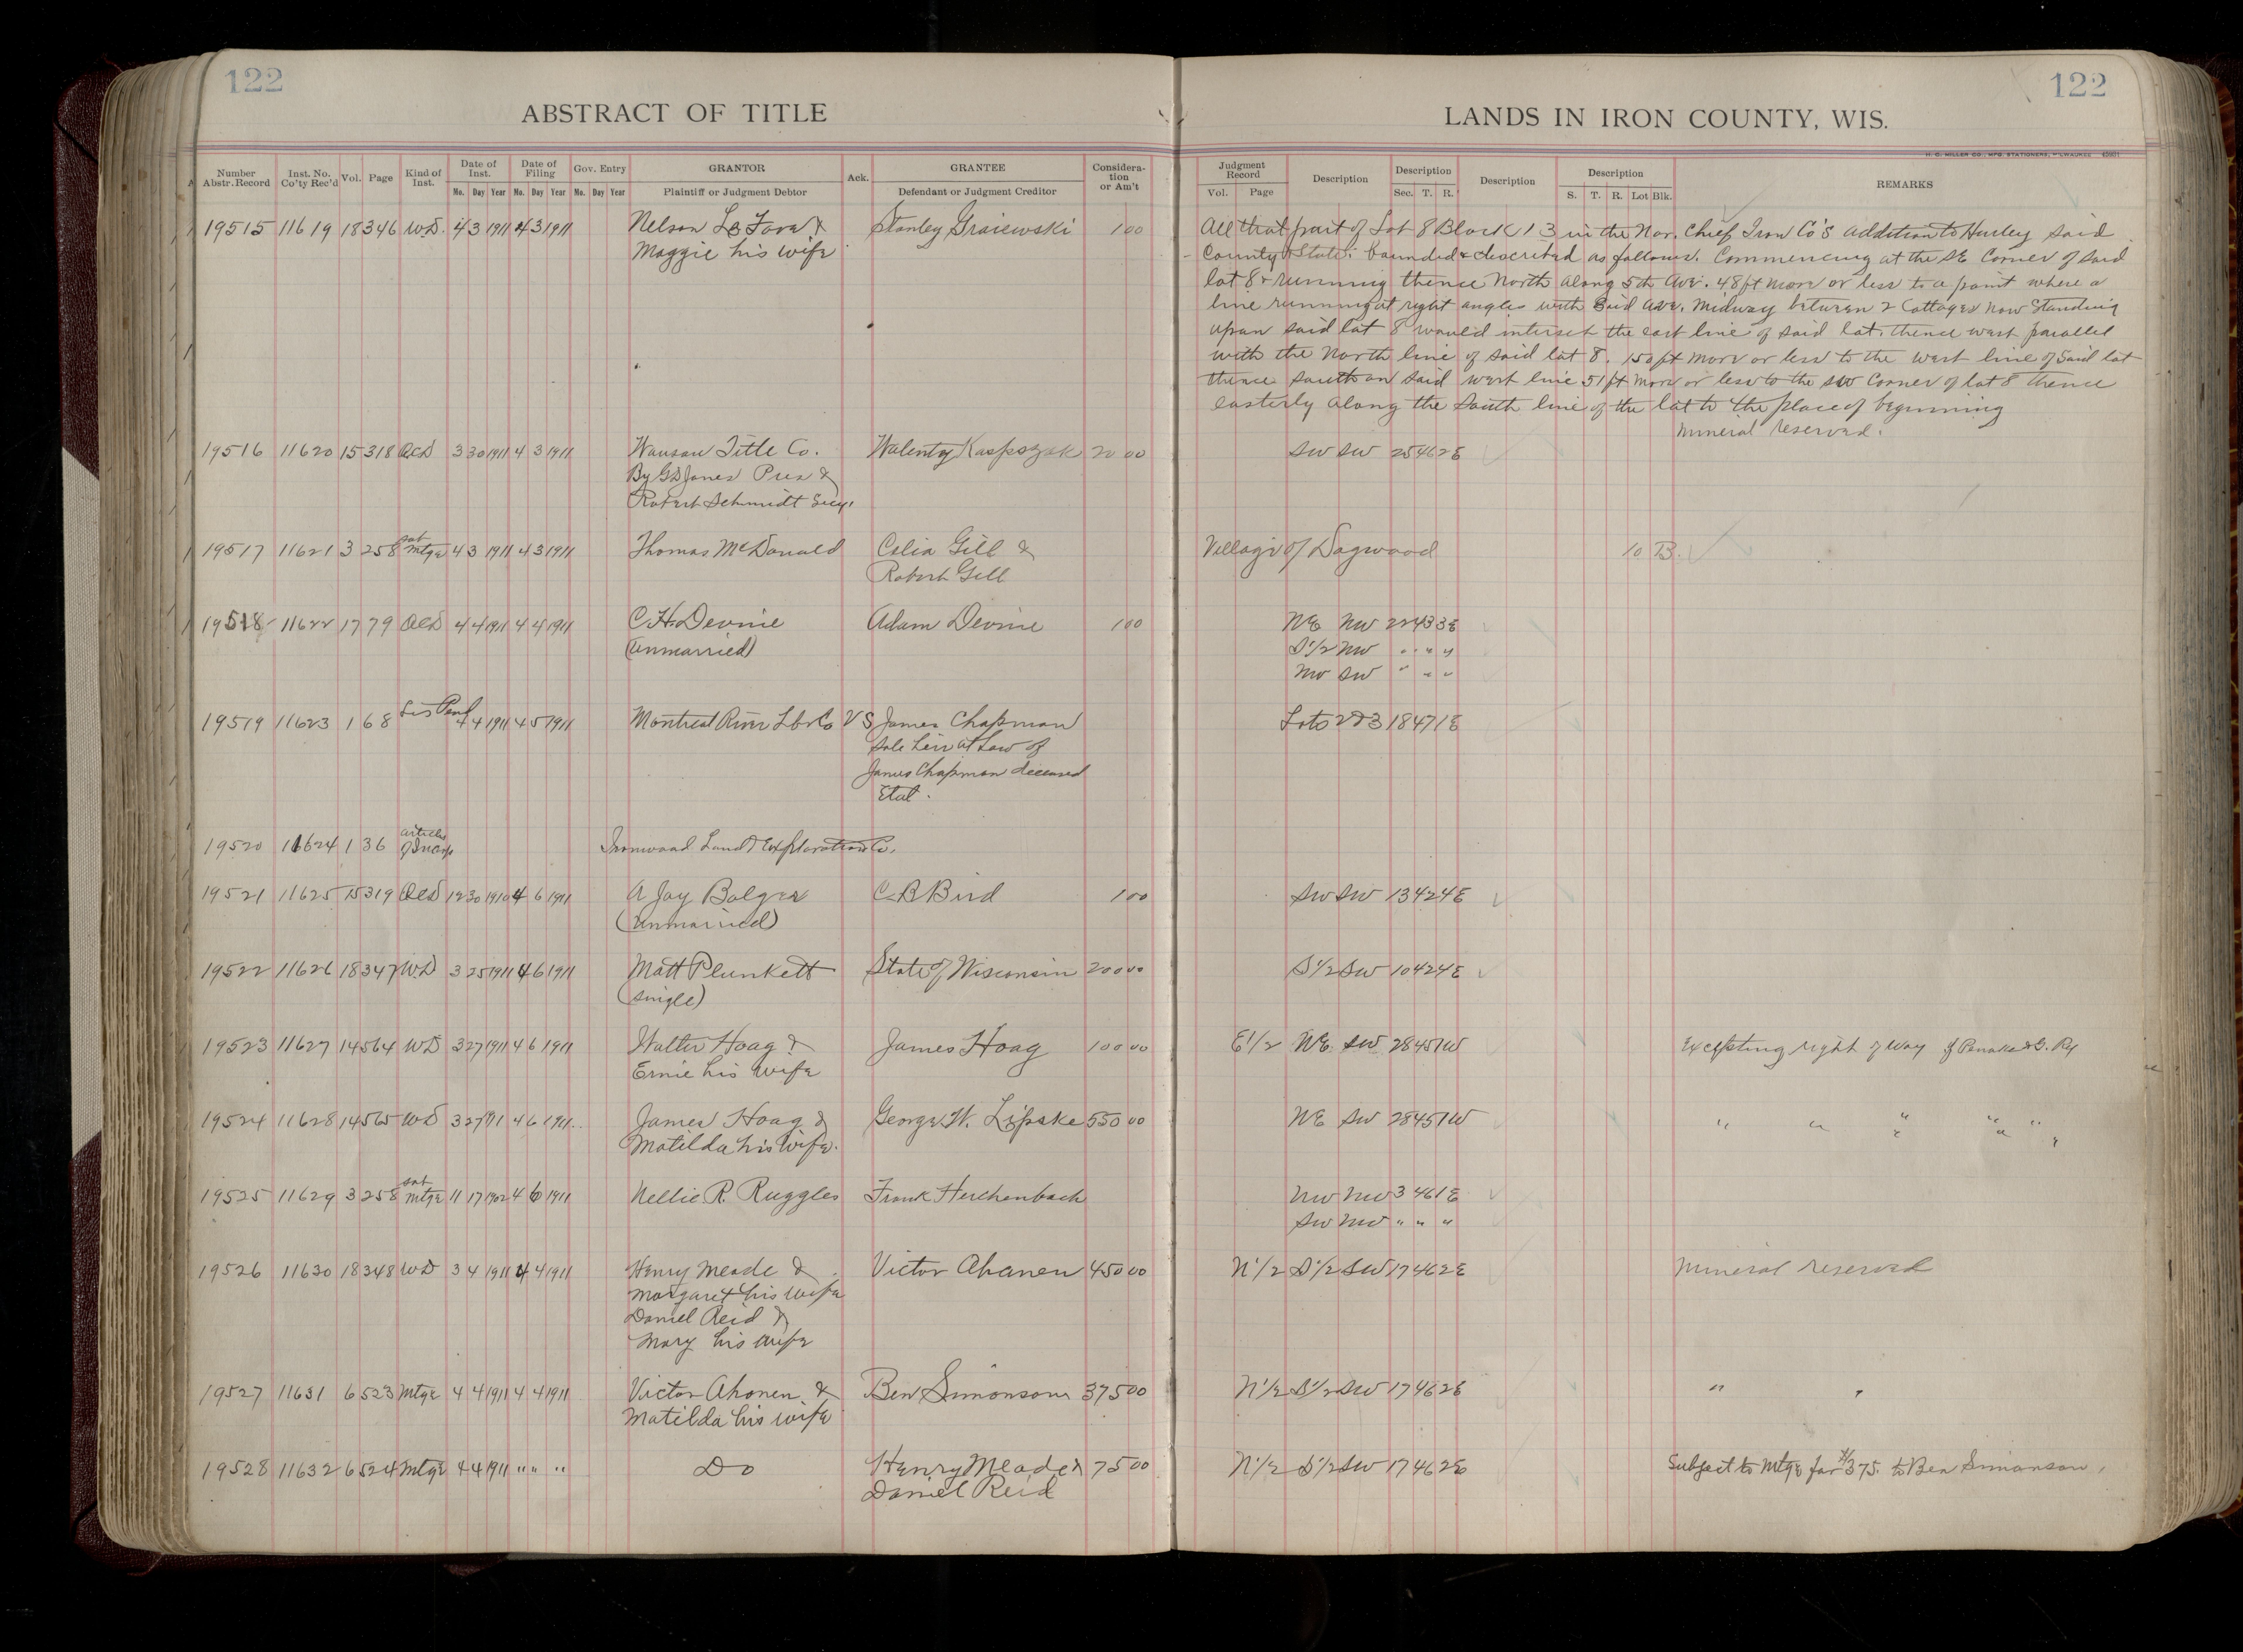 122
122
ABSTRACT OF TITLE
LANDS IN IRON COUNTY, WIS.
H. C. MILLER CO., MFG. STATIONERS, MILWAUKEE
Number Abstr. Record
Inst. No. Co'ty Rec'd
Vol.
Page
Kind of Inst.
Date of Inst.
Mo. Day Year
Date of Filing
Mo. Day Year
Gov. Entry
Mo. Day Year
GRANTOR
Plaintiff or Judgment Debtor
Ack.
GRANTEE
Defendant or Judgment Creditor
Considera-
tion
or Am't
Judgment Record
Vol. Page
Description
Description
Sec. T. R.
Description
Description
S. T. R. Lot Blk.
REMARKS
19515 11619 18 346 WD. 4 3 1911 4 3 1911 Nelson Le Fave & Stanley Graiewski 1 00
Maggie his wife
All that part of Lot 8 Block 13 in the Nor. Chief Iron Co's Addition to Hurley said
County & State. bounded & described as follows. Commencing at the SE Corner of said
lot 8 & running thence North along 5th Ave. 48 ft more or less to a point where a
line running at right angles with said Ave. Midway between 2 Cottages now Standing
upon said lot 8 would intersect the east line of said lot. thence west parallel
with the North line of said lot 8. 150 ft more or less to the west line of Said lot
thence south on said west line 51 ft more or less to the SW Corner of lot 8 thence
easterly along the South line of the lot to the place of beginning
mineral reserved.
19516 11620 15 318 QCD 3 30 1911 4 3 1911 Wausau Title Co. Walenty Kaspszak 20 00 SW SW 25 46 2E
By GD Jones Pres &
Robert Schmidt Secy.
19517 11621 3 258 sat mtge 4 3 1911 4 3 1911 Thomas McDonald Celia Gill & Village of Dogwood 10 B.
Robert Gill
19518 11622 17 79 QCD 4 4 1911 4 4 1911 C.H. Devine Adam Devine 1 00 NE NW 22 43 3E
(unmarried) S1/2 NW " " "
NW SW " " "
19519 11623 1 68 Lis Pend 4 4 1911 4 5 1911 Montreal River Lbr Co VS James Chapman Lots 2 & 3 18 47 1E
sole heir at Law of
James Chapman deceased
Etal.
19520 11624 1 36 articles of Incorp Ironwood Land & Exploration Co.
19521 11625 15 319 QCD 12 30 1910 4 6 1911 A Jay Bolger C.B. Bird 1 00 SW SW 13 42 4E
(unmarried)
19522 11626 18 347 WD 3 25 1911 4 6 1911 Matt Plunkett State of Wisconsin 200 00 S1/2 SW 10 42 4E
(single)
19523 11627 14 564 WD 3 27 1911 4 6 1911 Walter Hoag & James Hoag 100 00 E1/2 NE SW 28 45 1W Excepting right of way of
Ernie his wife
19524 11628 14 565 WD 3 27 11 4 6 1911 James Hoag & George W. Lipske 550 00 NE SW 28 45 1W " " " " "
Matilda his wife.
19525 11629 3 258 sat mtge 11 17 1902 4 6 1911 Nellie R. Ruggles Frank Herchenbach NW NW 3 46 1E
SW NW " " "
19526 11630 18 348 WD 3 4 1911 4 4 1911 Henry Meade & Victor Ahonen 450 00 N1/2 S1/2 SW 17 46 2E Mineral reserved
Margaret his wife
Daniel Reid &
Mary his wife
19527 11631 6 523 Mtge 4 4 1911 4 4 1911 Victor Ahonen & Ben Simonson 375 00 N1/2 S1/2 SW 17 46 2E " "
Matilda his wife
19528 11632 6 524 Mtge 4 4 1911 " " " Do Henry Meade & 75 00 N1/2 S1/2 SW 17 46 2E Subject to Mtge for $375. to Ben Simonson.
Daniel Reid